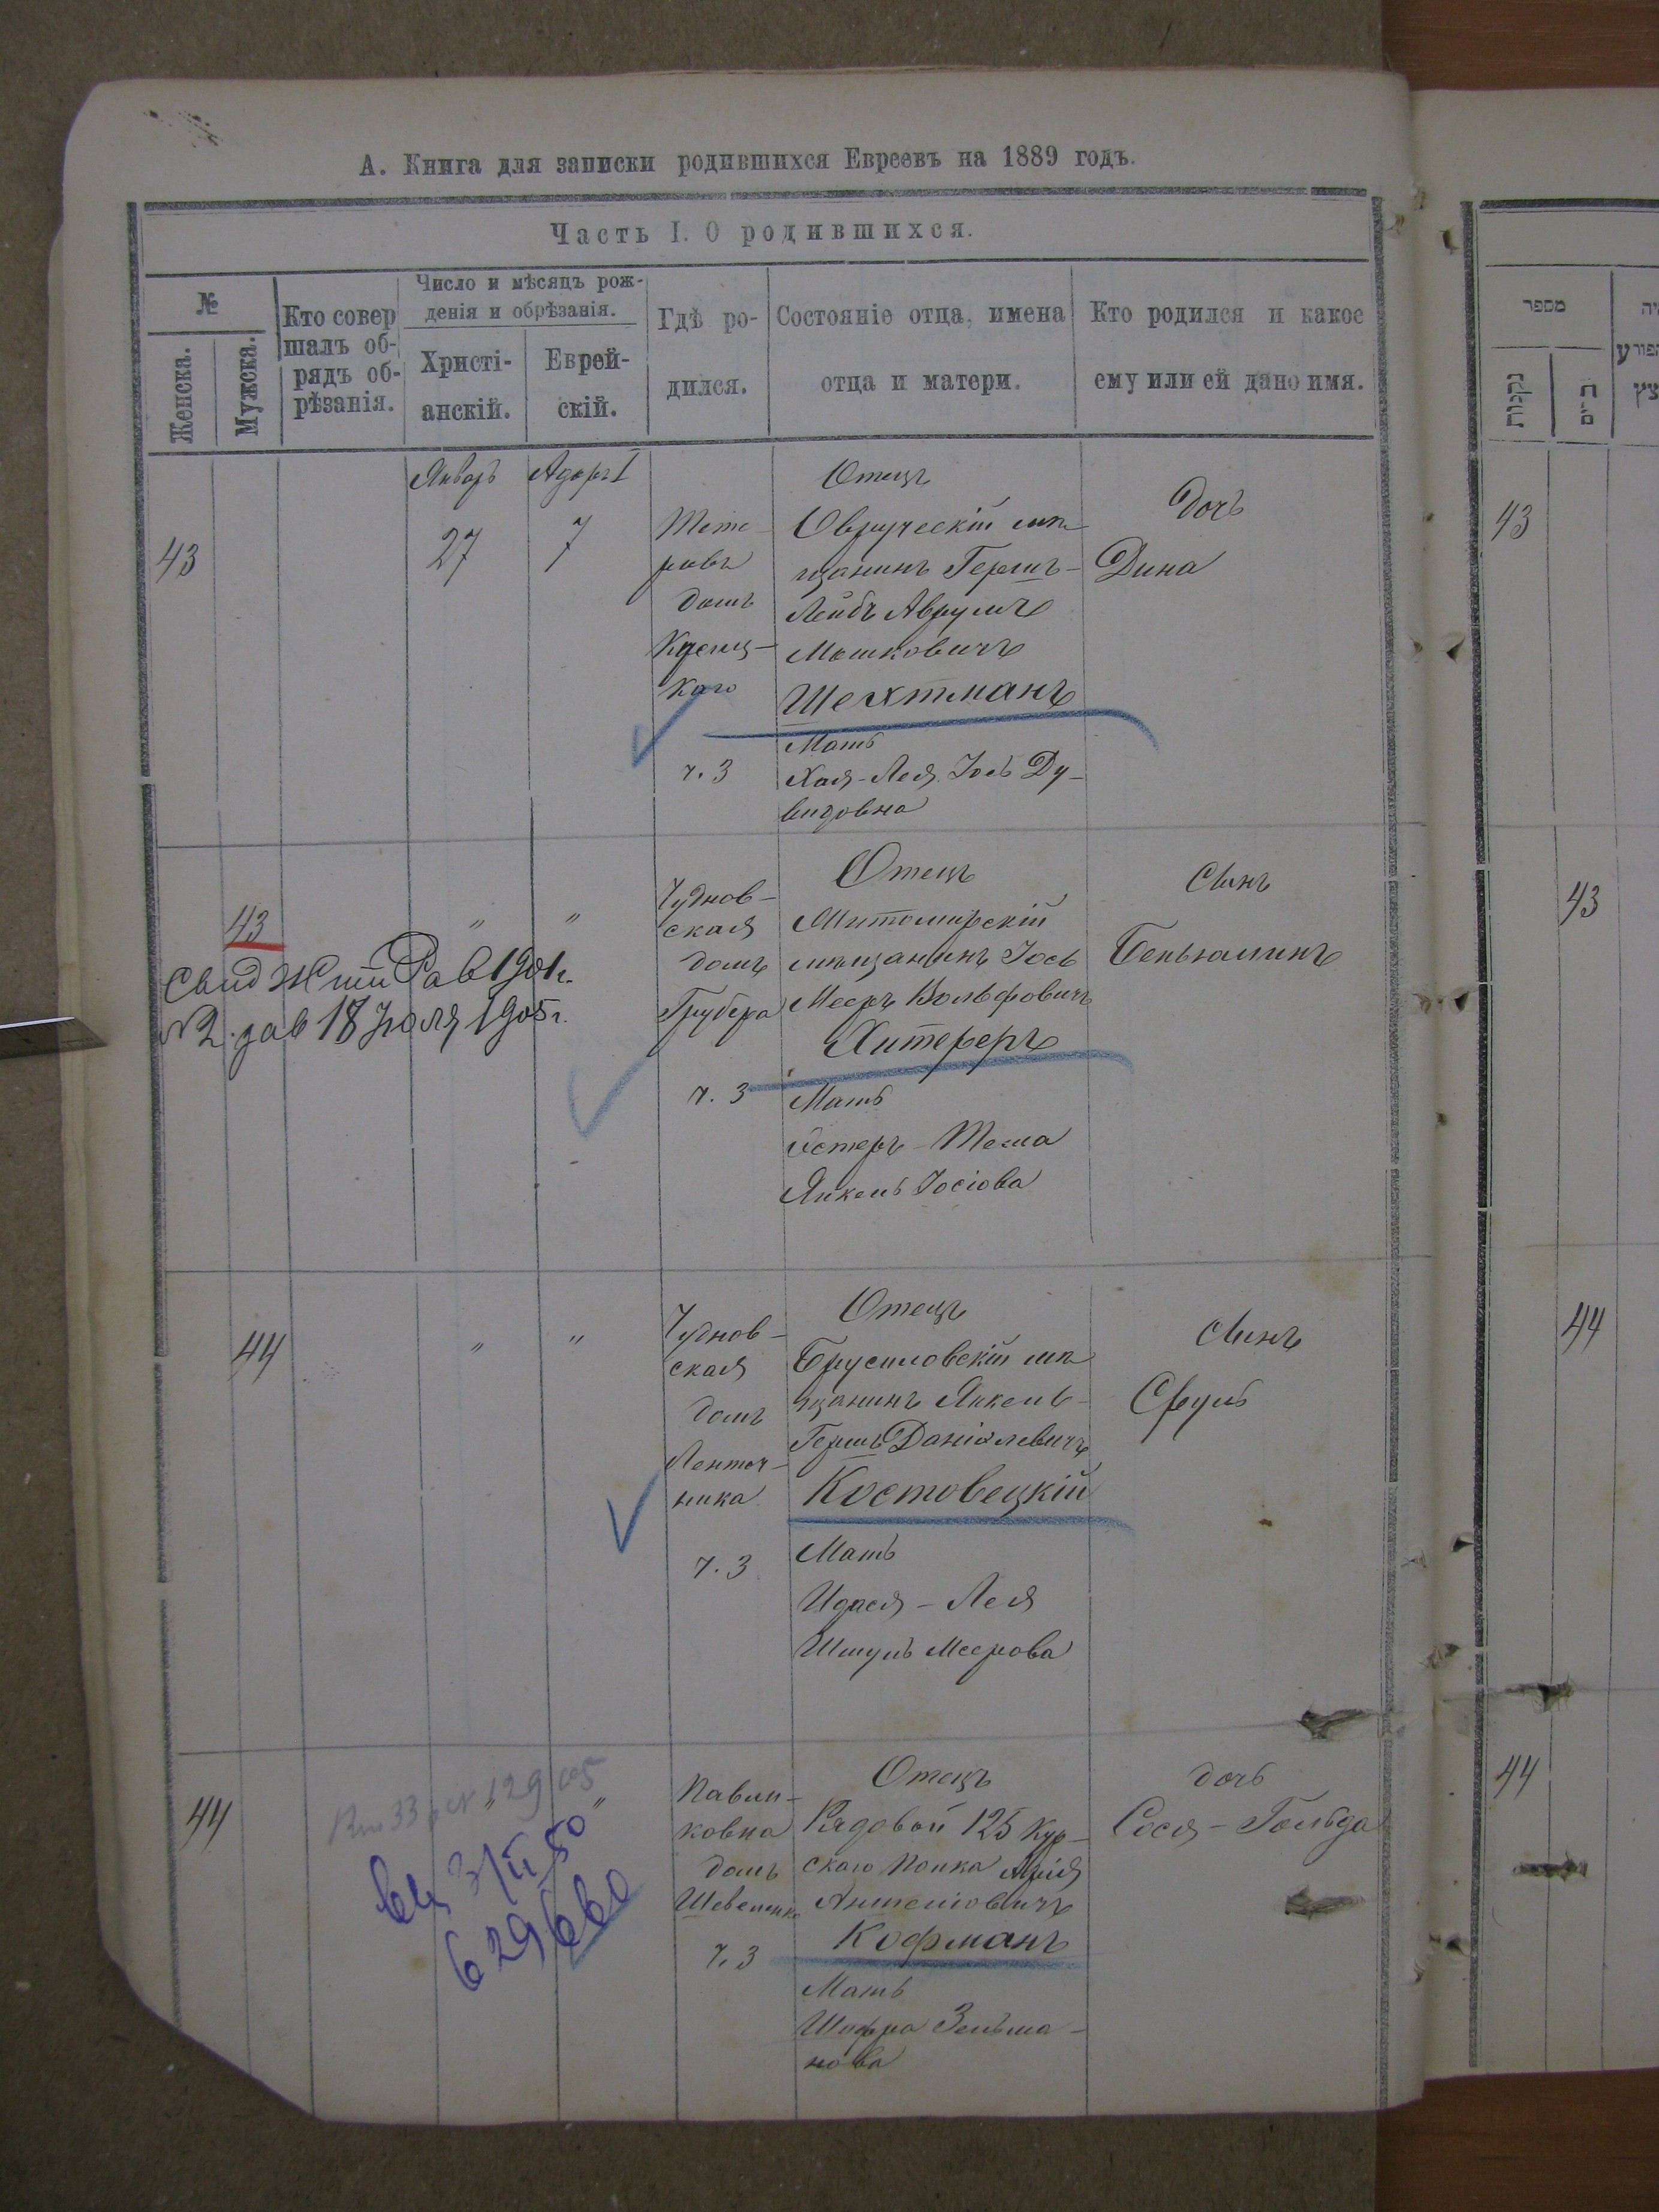 А. Книга для записки родившихся Евреевъ на 1889 годъ.
Часть I. О родившихся.
№
Женска.
Мужска.
Кто совер
шалъ об-
рядъ об-
рѣзанія.
Число и мѣсяцъ рож-
денія и обрѣзанія.
Христі-
анскій.
Еврей-
скій.
Гдѣ ро-
дился.
Состояніе отца, имена
отца и матери.
Кто родился и какое
ему или ей дано имя.
43
Январь
27
Адаръ I
7
Тете-
ровъ
домъ
каго
ч. 3
Отецъ
Овруческій мѣ-
щанинъ Гершъ-
Лейбъ Аврумъ
Мошковичъ
Шехтманъ
Мать
Хая-Лея Іось Ду-
видовна
Дочь
Дина
43
"
"
Свид Жит Рав 1901г.
№2. дав 18 Іюля 1905г.
Чуднов-
ская
домъ
Грубера
ч. 3
Отецъ
Житомирскій
мѣщанинъ Іось
Мееръ Вольфовичъ
Хитереръ
Мать
Эстеръ-Тема
Янкель Іосіова
Сынъ
Беньюминъ
44
"
"
Чуднов-
ская
домъ
Ленточ-
ника
ч. 3
Отецъ
Брусиловскій мѣ
щанинъ Янкель-
Гершъ Даніалевичъ
Костовецкій
Мать
Идася-Лея
Шмуль Меерова
Сынъ
Сруль
44
"
"
629660
Павли-
ковка
домъ
ч. 3
Отецъ
Рядовой 125 Кур-
скаго Полка
Кофманъ
Мать
Шифра Зельма-
нова
дочь
Сося-Гольда
מספר
נקבות
43
43
44
44